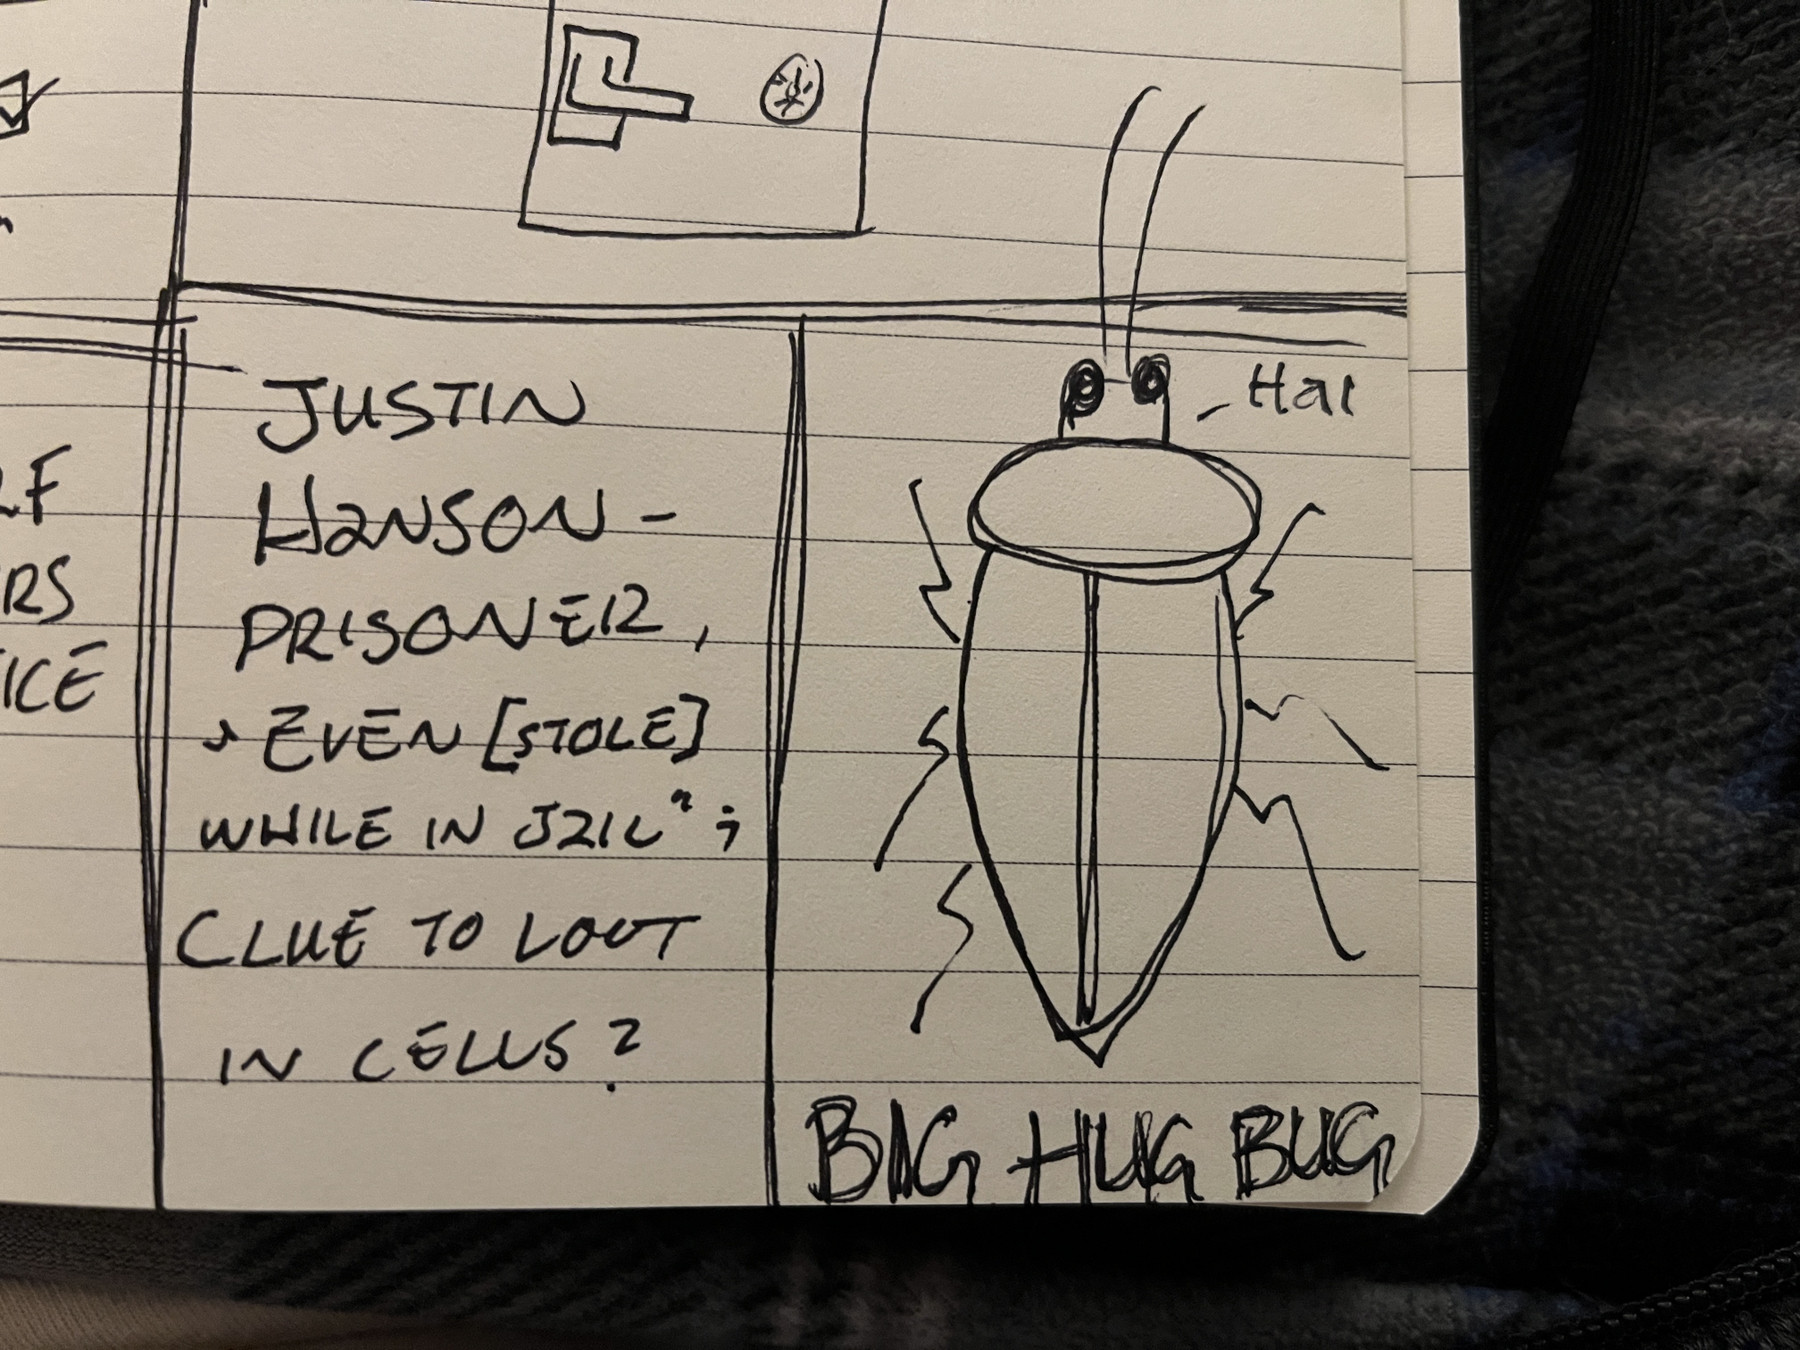 LF
RS
ICE
JUSTIN
HANSON -
PRISONER,
" EVEN [STOLE]
WHILE IN JAIL" ;
CLUE TO LOOT
IN CELLS?
- Hai
BIG HUG BUG